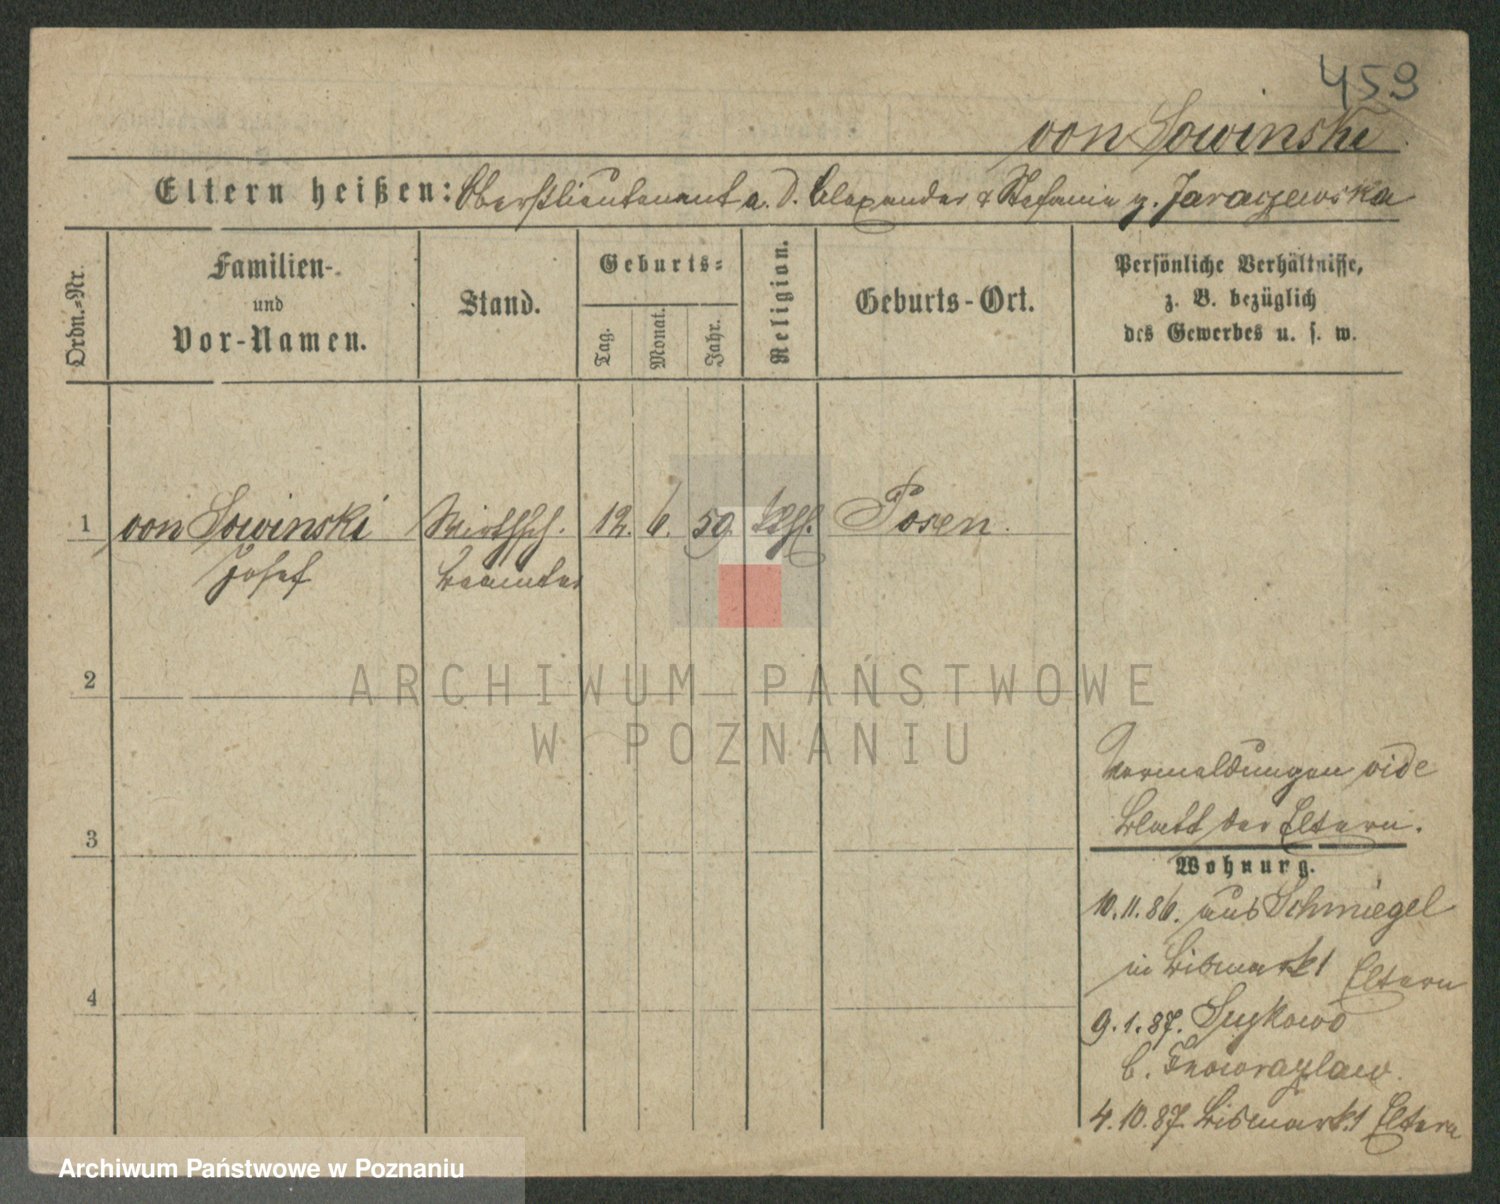 459
von Sowinski
Eltern heißen: Oberstlieutenant a. D. Alexander & Stefanie g. Jaraczewska
Ordn.-Nr.
Familien-
und
Vor-Namen.
Stand.
Geburts-
Tag.
Monat.
Jahr.
Religion.
Geburts-Ort.
Persönliche Verhältnisse,
z. B. bezüglich
des Gewerbes u. s. w.
1 von Sowinski Wirthsch. 12. 6. 59. Posen.
Josef Beamter
2
ARCHIWUM PAŃSTWOWE
W POZNANIU
Vermeldungen vide
3 Blatt der Eltern.
Wohnung.
10.11.86. aus Schmiegel
in Bismarkt 1 Eltern
4
9.1.87. Suzkowo
b. Inowrazlaw.
4.10.87. Bismarkt. 1 Eltern
Archiwum Państwowe w Poznaniu